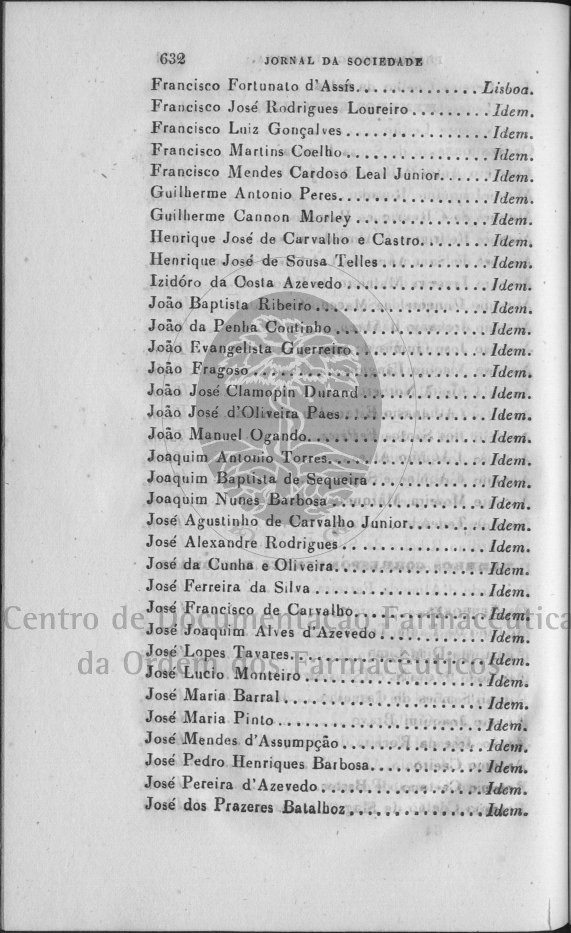 632 JORNAL DA SOCIEDADE
Francisco Fortunato d'Assís.............. Lisboa.
Francisco José Rodrigues Loureiro ......... Idem.
Francisco Luiz Gonçalves ................. Idem.
Francisco Martins Coelho ................. Idem.
Francisco Mendes Cardoso Leal Junior...... Idem.
Guilherme Antonio Peres.................. Idem.
Guilherme Cannon Morley ................ Idem.
Henrique José de Carvalho e Castro........ Idem.
Henrique José de Sousa Telles ............. Idem.
Izidóro da Costa Azevedo ................. Idem.
João Baptista Ribeiro .................... Idem.
João da Penha Coutinho .................. Idem.
João Evangelista Guerreiro ................ Idem.
João Fragoso ........................... Idem.
João José Clamopin Durand ............... Idem.
João José d'Oliveira Paes ................. Idem.
João Manuel Ogando..................... Idem.
Joaquim Antonio Torres................... Idem.
Joaquim Baptista de Sequeira .............. Idem.
Joaquim Nunes Barbosa .................. Idem.
José Agustinho de Carvalho Junior......... Idem.
José Alexandre Rodrigues ................. Idem.
José da Cunha e Oliveira.................. Idem.
José Ferreira da Silva .................... Idem.
José Francisco de Carvalho................ Idem.
Centro de Documentação Farmacêutica
José Joaquim Alves d'Azevedo ............. Idem.
José Lopes Tavares....................... Idem.
da Ordem dos Farmacêuticos
José Lucio Monteiro ..................... Idem.
José Maria Barral ....................... Idem.
José Maria Pinto ........................ Idem.
José Mendes d'Assumpção ................. Idem.
José Pedro Henriques Barbosa.............. Idem.
José Pereira d'Azevedo ................... Idem.
José dos Prazeres Batalhoz ................ Idem.